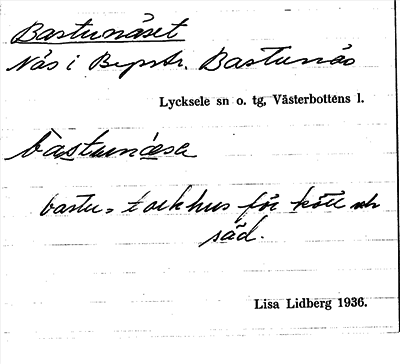 Bastunäset
Näs i Bypstr. Bastunäs
Lycksele sn o. tg, Västerbottens l.
bastunäse
bastu = torkhus för kött och
säd.
Lisa Lidberg 1936.